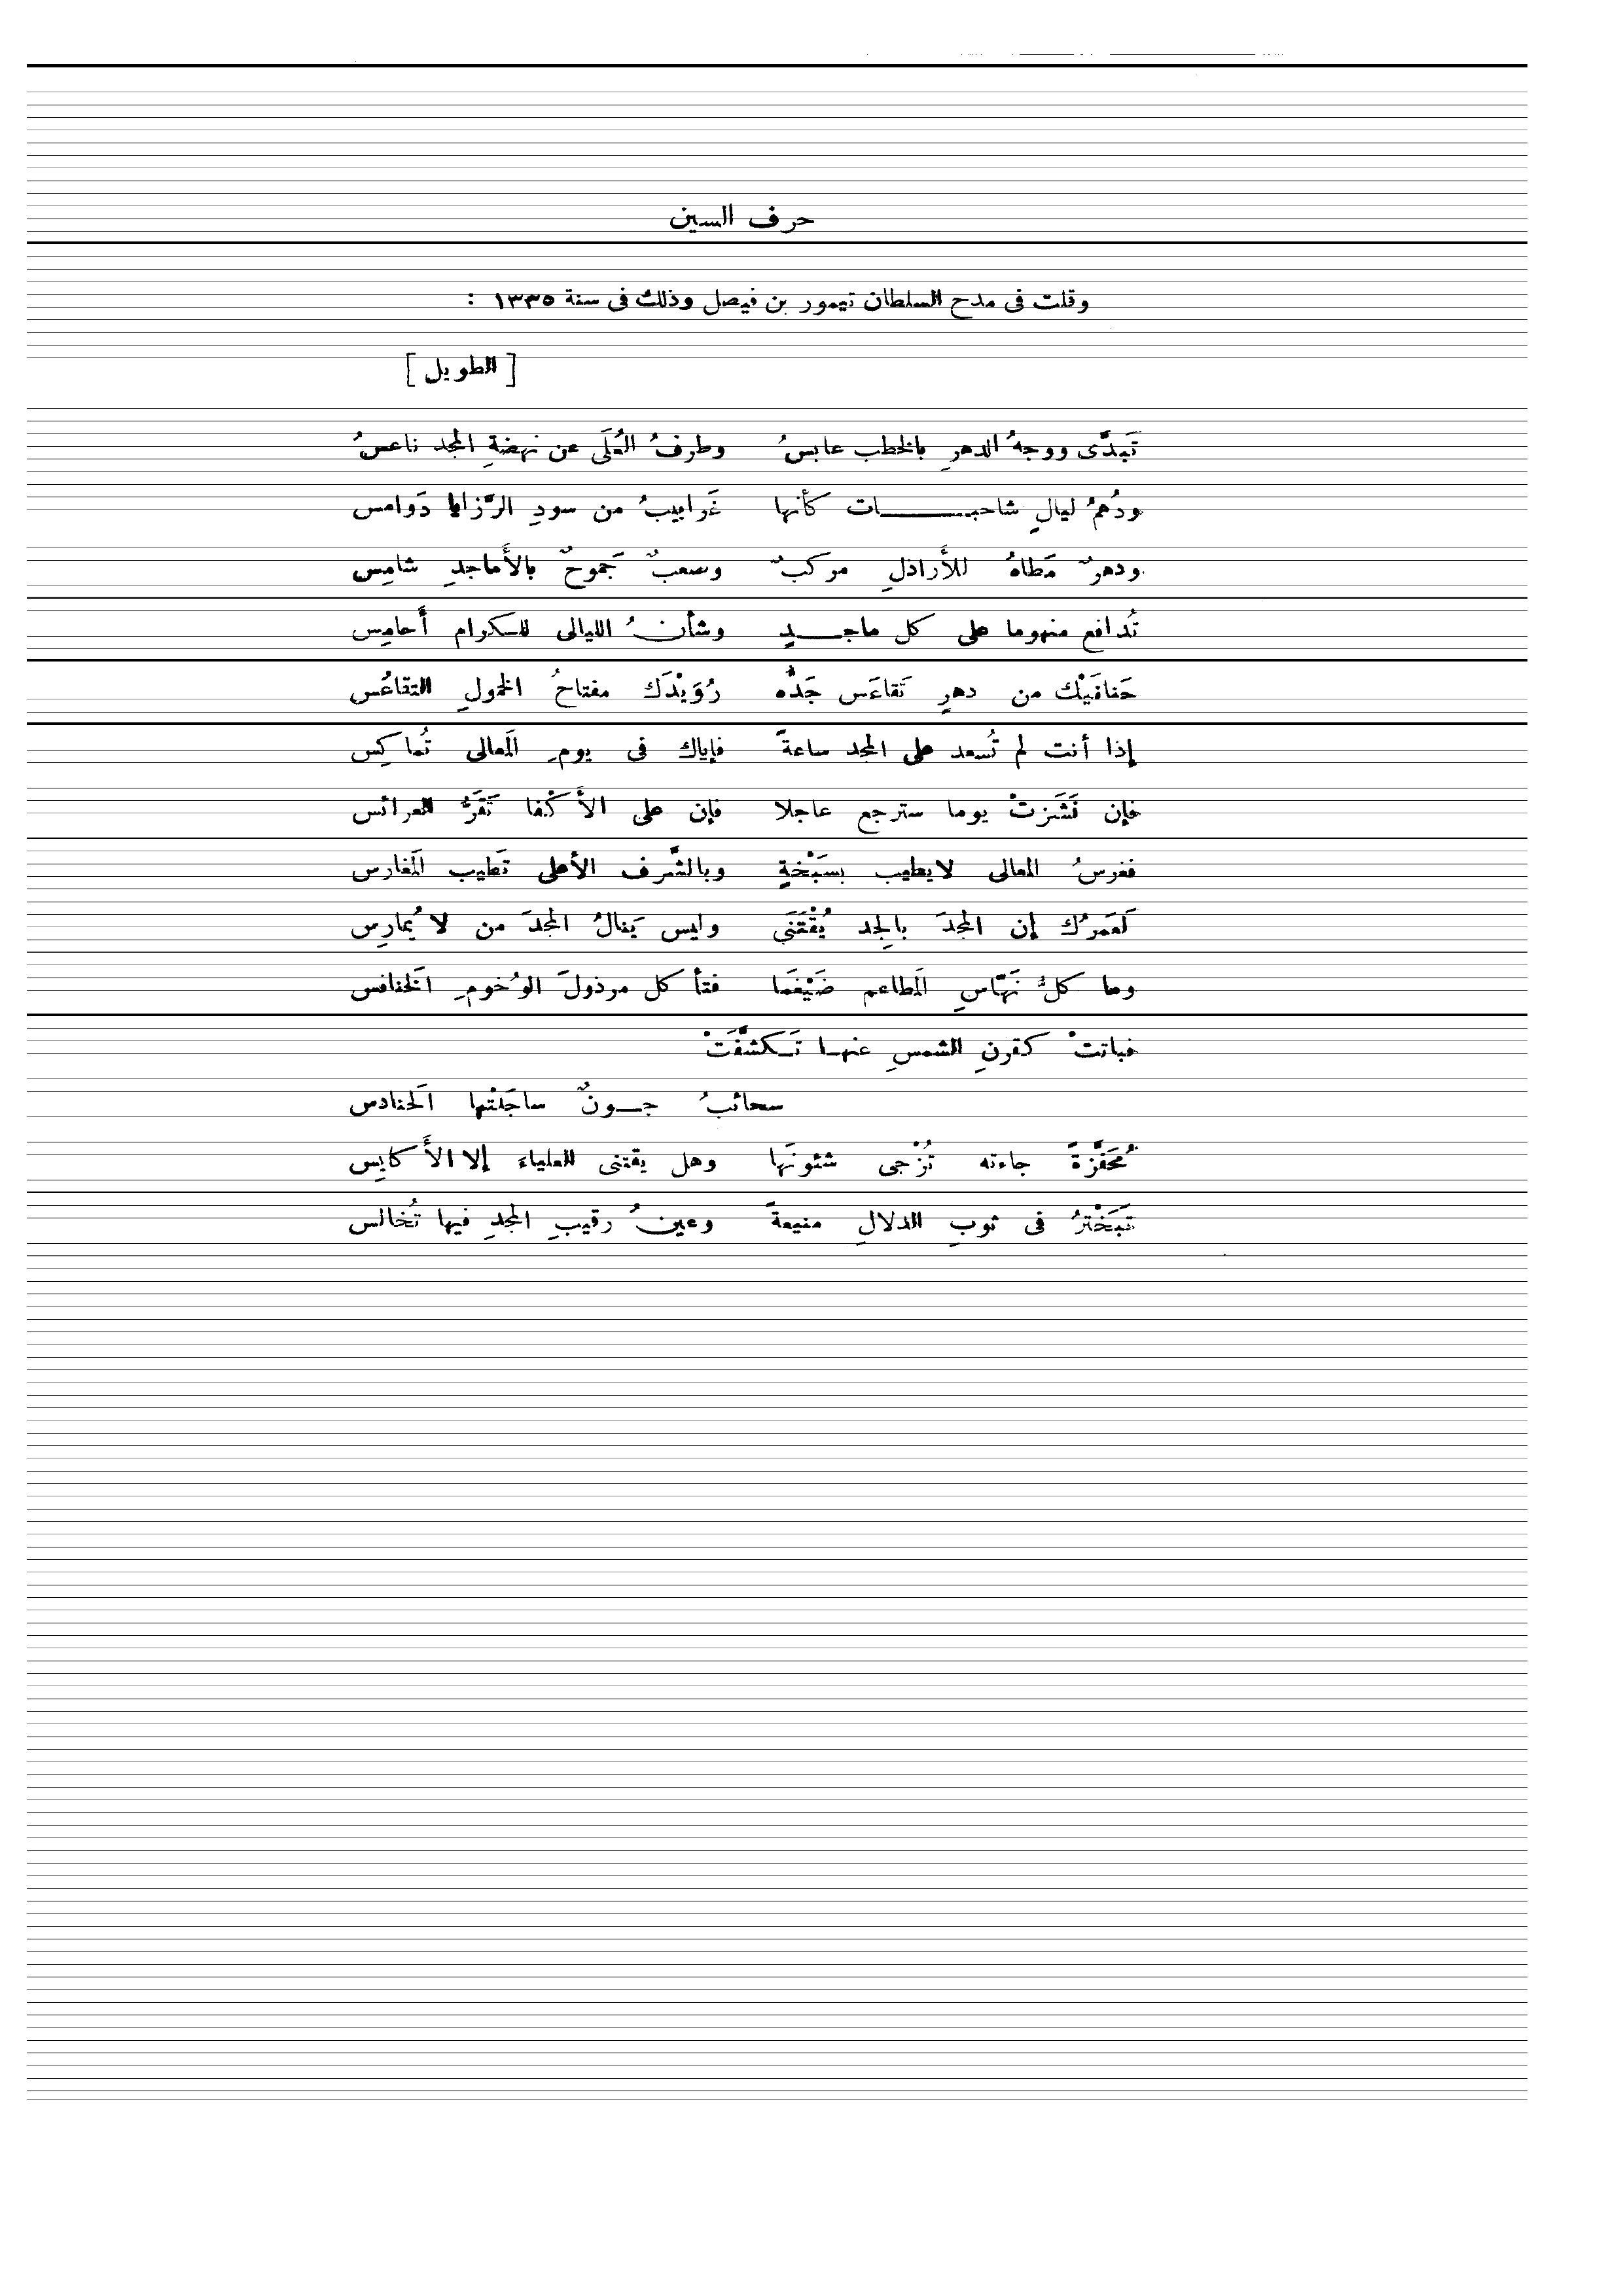 حرف السين
وقلت فى مدح السلطان تيمور بن فيصل وذلك فى سنة ١٣٣٥ :
[ الطويل ]
تَبدَّى ووجهُ الدهرِ بالخطب عابسُ وطرفُ العُلَى عن نهضةِ المجد ناعسُ
ودُهمُ ليالٍ شاحبــات كأنها غَرابيبُ من سودِ الرَّزايا دَوامس
ودهرٌ مَطاهُ للأراذلِ مركبٌ وصعبٌ جَموحٌ بالأَماجدِ شامِس
تُدافع منهوما على كل ماجــدٍ وشأنُ الليالى للكرام أَحامِس
حَنانَيْك من دهرٍ تَقاعَس جَدُّه رُوَيْدَك مفتاحُ الخمولِ التقاعُس
إذا أنت لم تُسعد على المجد ساعةً فإياك فى يومِ المَعالى تُماكِس
فإن نَشَزتْ يوما سترجع عاجلا فإن على الأَكْفا تَقَرُّ العرائس
فغرسُ المعالى لايطيب بسَبْخةٍ وبالشَّرف الأعلى تَطيب المَغارس
لَعَمرُك إن المجدَ بالجِد يُقْتَنَى وليس يَنالُ المجدَ من لا يُمارِس
وما كلُّ نَهَّاسِ المَطاعم ضَيْغَما فتأكل مرذولَ الوُخومِ الخَنافس
فباتتْ كقرنِ الشمسِ عنهـا تَـكشَّفَتْ
سحائبُ جــونٌ ساجَلتْها الحَنادس
مُحَفَّزةً جاءته تُزْجى شئونَها وهل يقتنى العلياءَ إلا الأَكايِس
تَبَخْترُ فى ثوبِ الدلالِ منيعةً وعينُ رقيبِ المجدِ فيها تُخالس